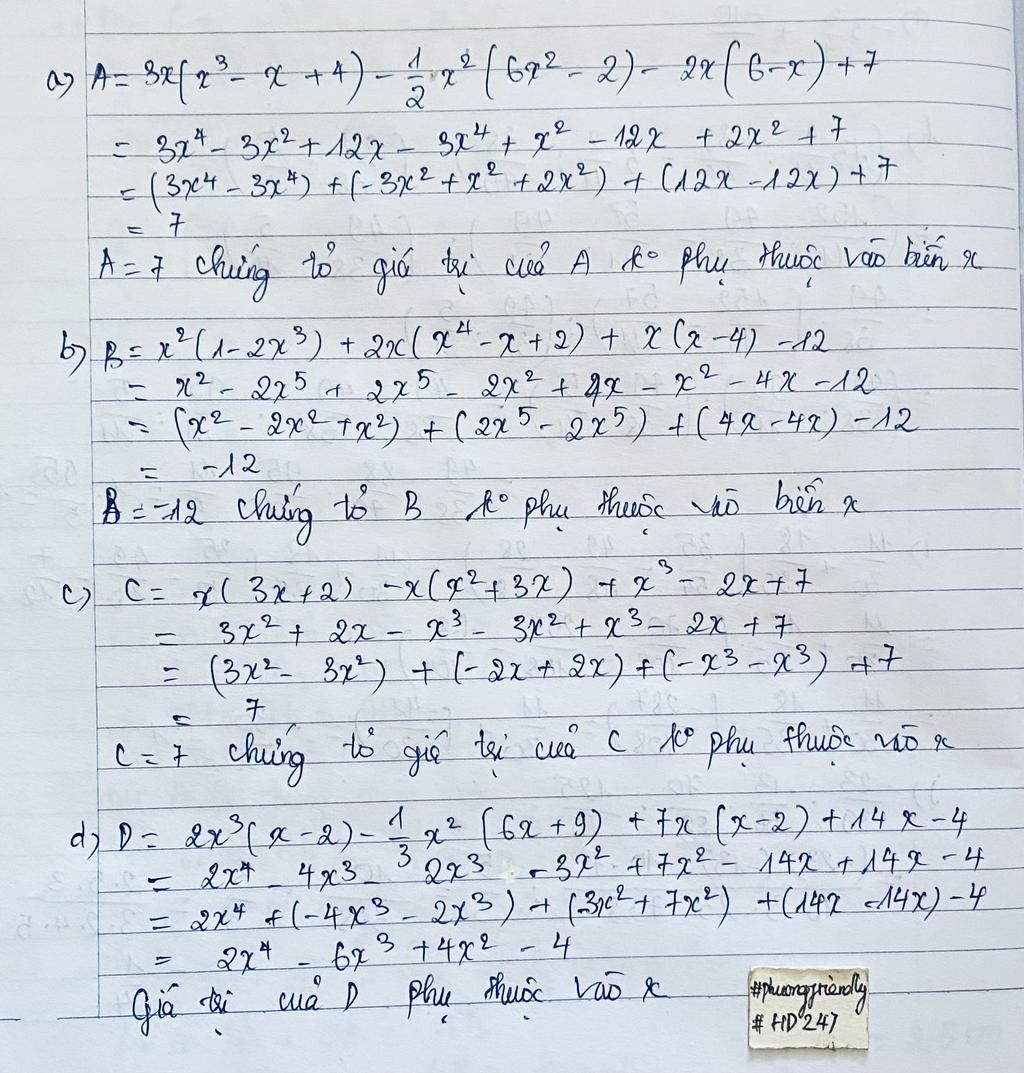 a) A = 3x(x³ - x + 4) - 1/2 x² (6x² - 2) - 2x(6-x) + 7
= 3x⁴ - 3x² + 12x - 3x⁴ + x² - 12x + 2x² + 7
= (3x⁴ - 3x⁴) + (-3x² + x² + 2x²) + (12x - 12x) + 7
= 7
A = 7 chứng tỏ giá trị cuả A kº phụ thuộc vào biến x
b) B = x²(1 - 2x³) + 2x(x⁴ - x + 2) + x(x - 4) - 12
= x² - 2x⁵ + 2x⁵ - 2x² + 4x - x² - 4x - 12
= (x² - 2x² + x²) + (2x⁵ - 2x⁵) + (4x - 4x) - 12
= -12
B = -12 chứng tỏ B kº phụ thuộc vào biến x
c) C = x(3x + 2) - x(x² + 3x) + x³ - 2x + 7
= 3x² + 2x - x³ - 3x² + x³ - 2x + 7
= (3x² - 3x²) + (-2x + 2x) + (-x³ - x³) + 7
= 7
C = 7 chứng tỏ giá trị cuả C kº phụ thuộc vào x
d) D = 2x³(x - 2) - 1/3 x² (6x + 9) + 7x(x - 2) + 14x - 4
= 2x⁴ - 4x³ - 2x³ - 3x² + 7x² - 14x + 14x - 4
= 2x⁴ + (-4x³ - 2x³) + (3x² + 7x²) + (14x - 14x) - 4
= 2x⁴ - 6x³ + 4x² - 4
Giá trị cuả D phụ thuộc vào x
#phuongfriendly
# HD247